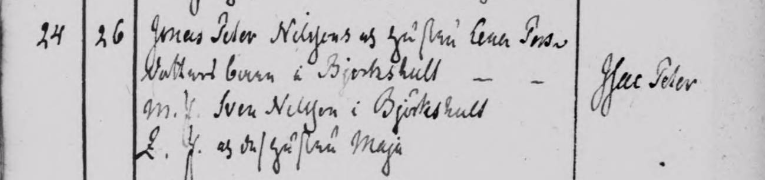 24 26 Jonas Peter Nilssons och hustru Lena Pers
Dotters barn i Björkshult — — Isac Peter
M. V. Sven Nilsson i Björkshult
Q. V. och dess hustru Maja